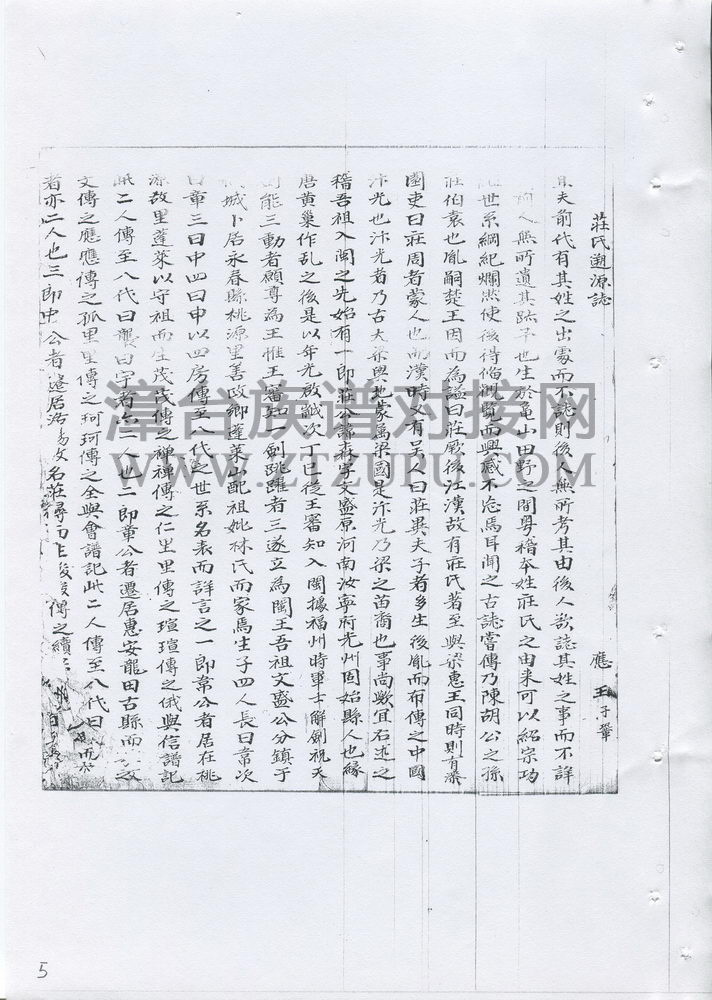 莊氏遡源誌
應王子華
夫前代有其姓之出處而不誌則後人無所考其由後人欲誌其姓之事而不詳
人無所遺其跡予也生於亀山田野之間粤稽本姓莊氏之由来可以紹宗功
世系綱紀爛然使後得脩觀覧而興感不忘焉耳聞之古誌嘗傳乃陳胡公之孫
莊伯袁也胤嗣楚王因而為謚曰莊厥後江漢故有莊氏著至與梁惠王同時則有
園吏曰莊周者蒙人也而漢時又有吴人曰莊夫子者多生後胤而布傳之中國
汴光也汴光者乃古大梁與地蒙属梁國是汴光乃梁之苗裔也事尚歟宜石述之
稽吾祖入閩之先始有一郎莊公森字文盛原河南汝寧府光州固始縣人也緣
唐黄巢作乱之後是以年光啟次丁巳従王審知入閩據福州時軍士解劍祝天
能三動者願尊為王惟王審知一劍跳躍者三遂立為閩王吾祖文盛公分鎮于
城卜居永春縣桃源里善政鄉蓬萊山配祖妣林氏而家焉生子四人長曰常次
曰章三曰中四曰申以四房傳至八代之世系名表而詳言之一郎常公者居在桃
源故里蓬萊以守祖而生茂茂傳之禪禪傳之仁生里傳之瑄瑄傳之俄與信譜記
此二人傳至八代曰龔曰字者二人也二郎章公者遷居惠安龍田古縣而
文傳之應應傳之孤里里傳之珂珂傳之全與會譜記此二人傳至八代曰
者亦二人也三郎中公者遷居名莊尋
漳台族谱对接网
WWW.ZTZUPU.COM
5